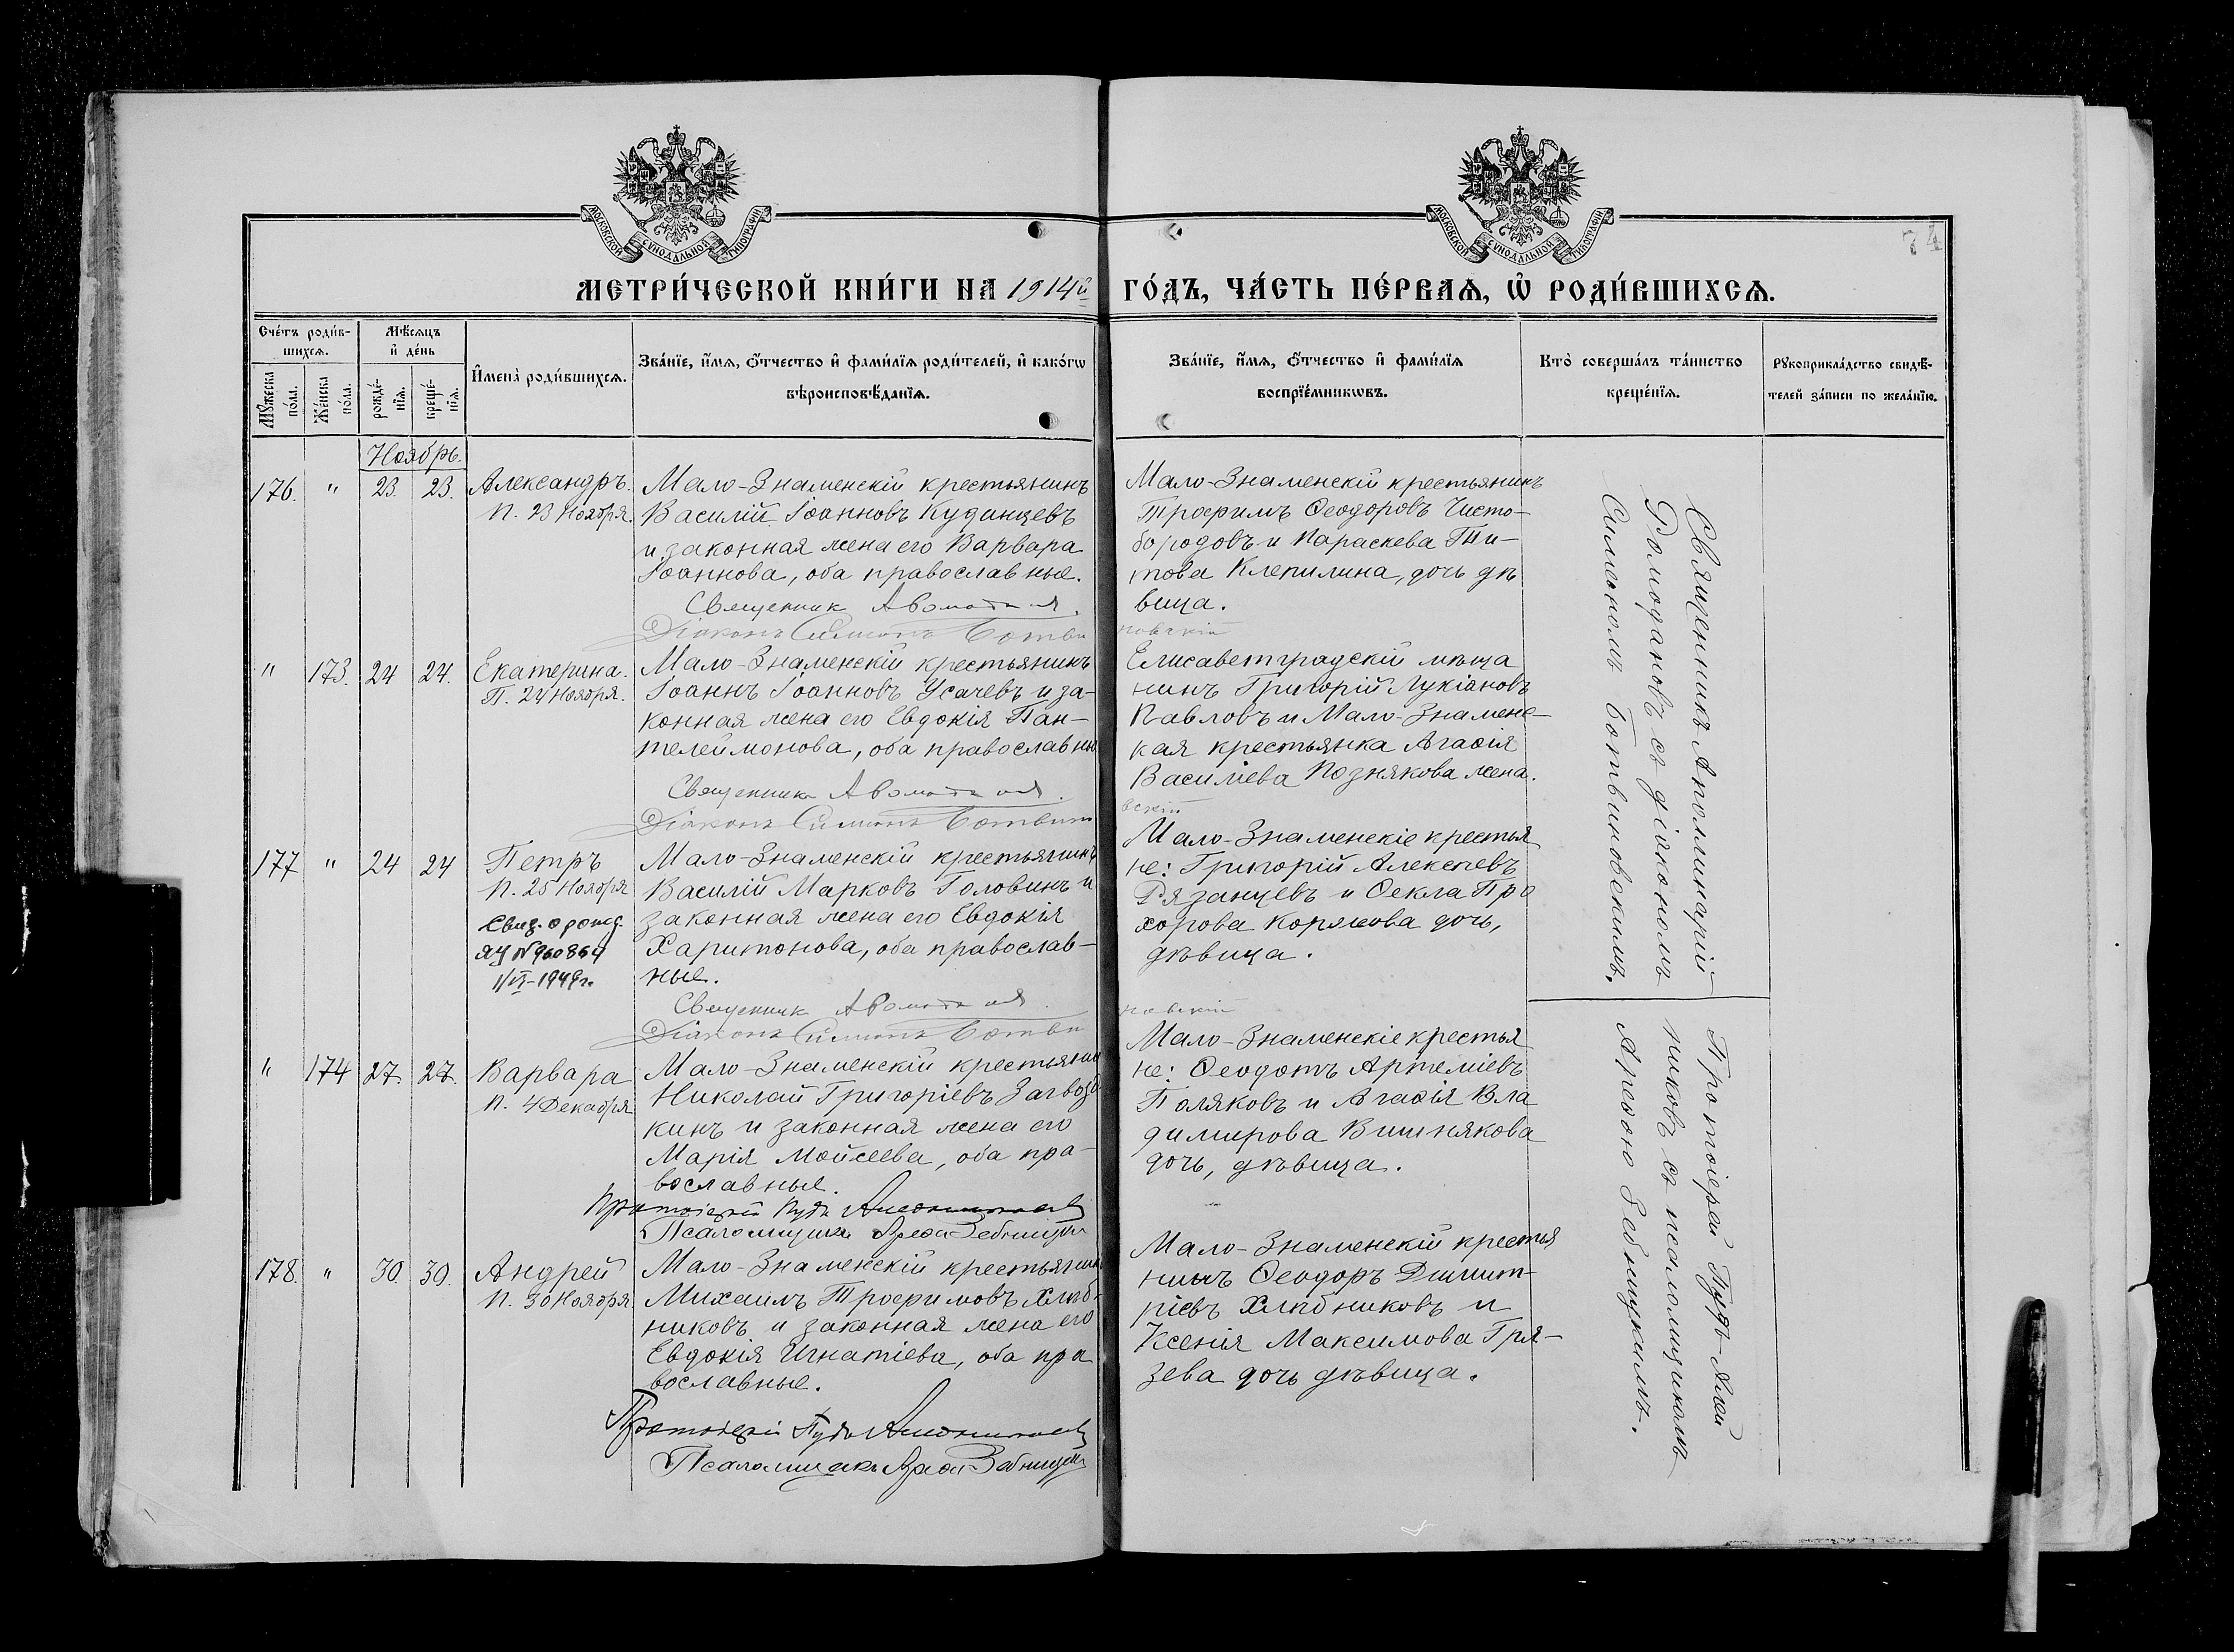 МОСКОВСКОЙ СУНОДАЛЬНОЙ ТИПОГРАФІИ
МОСКОВСКОЙ СУНОДАЛЬНОЙ ТИПОГРАФІИ
74
МЕТРИ́ЧЕСКОЙ КНИ́ГИ НА 1914й ГО́ДЪ, ЧА́СТЬ ПЕ́РВАѦ, Ѽ РОДИ́ВШИХСѦ.
Сче́тъ роди́в-
шихсѧ.
Мꙋ́жеска по́ла.
Же́нска по́ла.
Мѣ́сѧцъ
и҆ де́нь
рожде́-
нїѧ.
креще́-
нїѧ.
И҆мена̀ роди́вшихсѧ.
Зва́нїе, и҆́мѧ, ѻ҆́тчество и҆ фами́лїѧ роди́телей, и҆ како́гѡ
вѣроисповѣ́данїѧ.
Зва́нїе, и҆́мѧ, ѻ҆́тчество и҆ фами́лїѧ
воспрїе́мникѡвъ.
Кто̀ соверша́лъ та́инство
креще́нїѧ.
Рꙋкоприкла́дство свидѣ́-
телей за́писи по жела́нїю.
Ноябрь.
176. " 23. 23. Александръ.
П. 23 Ноября.
Мало-Знаменскій крестьянинъ
Василій Іоанновъ Кудинцевъ
и законная жена его Варвара
Іоаннова, оба православные.
Священник
Діаконъ Симеонъ Ботвиновскій
Мало-Знаменскій крестьянинъ
Трофимъ Ѳеодоровъ Чисто-
бородовъ и Параскева Ти-
това Клепилина, дочь дѣ
вица.
" 173. 24 24. Екатерина.
П. 24 Ноября.
Мало-Знаменскій крестьянинъ
Іоаннъ Іоанновъ Усачевъ и за-
конная жена его Евдокія Пан-
телеймонова, оба православны
Священник
Діаконъ Симеонъ Ботвиновскій
Елисаветградскій мѣща
нинъ Григорій Лукіановъ
Павловъ и Мало-Знаменс-
кая крестьянка Агаѳія
Василіева Познякова жена.
177 " 24 24 Петръ
П. 25 Ноября
Свид. о рожд.
ЯЦ № 960864
1/VI-1949г.
Мало-Знаменскій крестьянинъ
Василій Марковъ Головинъ и
законная жена его Евдокія
Харитонова, оба православ-
ные.
Священник
Діаконъ Симеонъ Ботвиновскій
Мало-Знаменскіе крестья
не: Григорій Алексѣевъ
Рязанцевъ и Ѳекла Про
хорова Корякова дочь,
дѣвица.
" 174 27. 27. Варвара
П. 4 Декабря
Мало-Знаменскій крестьянин
Николай Григоріевъ Загвозд
кинъ и законная жена его
Марія Мойсеева, оба пра-
вославные.
Протоіерей Пудъ
Псаломщикъ Ареѳа Зебницкій
Мало-Знаменскіе крестья
не: Ѳеодотъ Артеміевъ
Поляковъ и Агаѳія Вла
димирова Вишнякова
дочь, дѣвица.
178. " 30. 30. Андрей
П. 30 Ноября.
Мало-Знаменскій крестьянин
Михаилъ Трофимовъ Хлѣб-
никовъ и законная жена его
Евдокія Игнатіева, оба пра
вославные.
Протоіерей Пудъ
Псаломщикъ Ареѳа Зебницкій
Мало-Знаменскій крестья
нинъ Ѳеодоръ Димит-
ріевъ Хлѣбниковъ и
Ксенія Максимова Гря-
зева дочь дѣвица.
Священникъ Аполлинарій
Ромодановъ съ діакономъ
Симеономъ Ботвиновскимъ.
Протоіерей Пудъ
никовъ съ псаломщикомъ
Ареѳою Зебницкимъ.